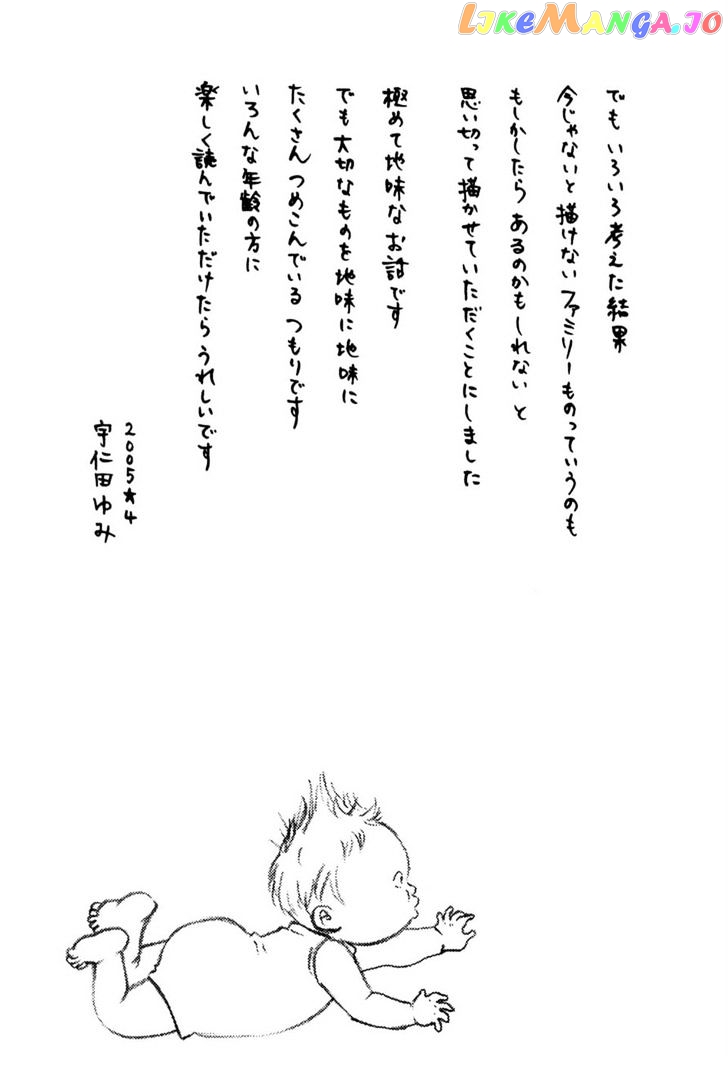 LIKEMANGA.IO
でも いろいろ考えた結果
今じゃないと描けないファミリーものっていうのも
もしかしたら あるのかもしれない と
思い切って描かせていただくことにしました
極めて地味なお話です
でも大切なものを地味に地味に
たくさん つめこんでいる つもりです
いろんな年齢の方に
楽しく読んでいただけたら うれしいです
2005★4
宇仁田ゆみ